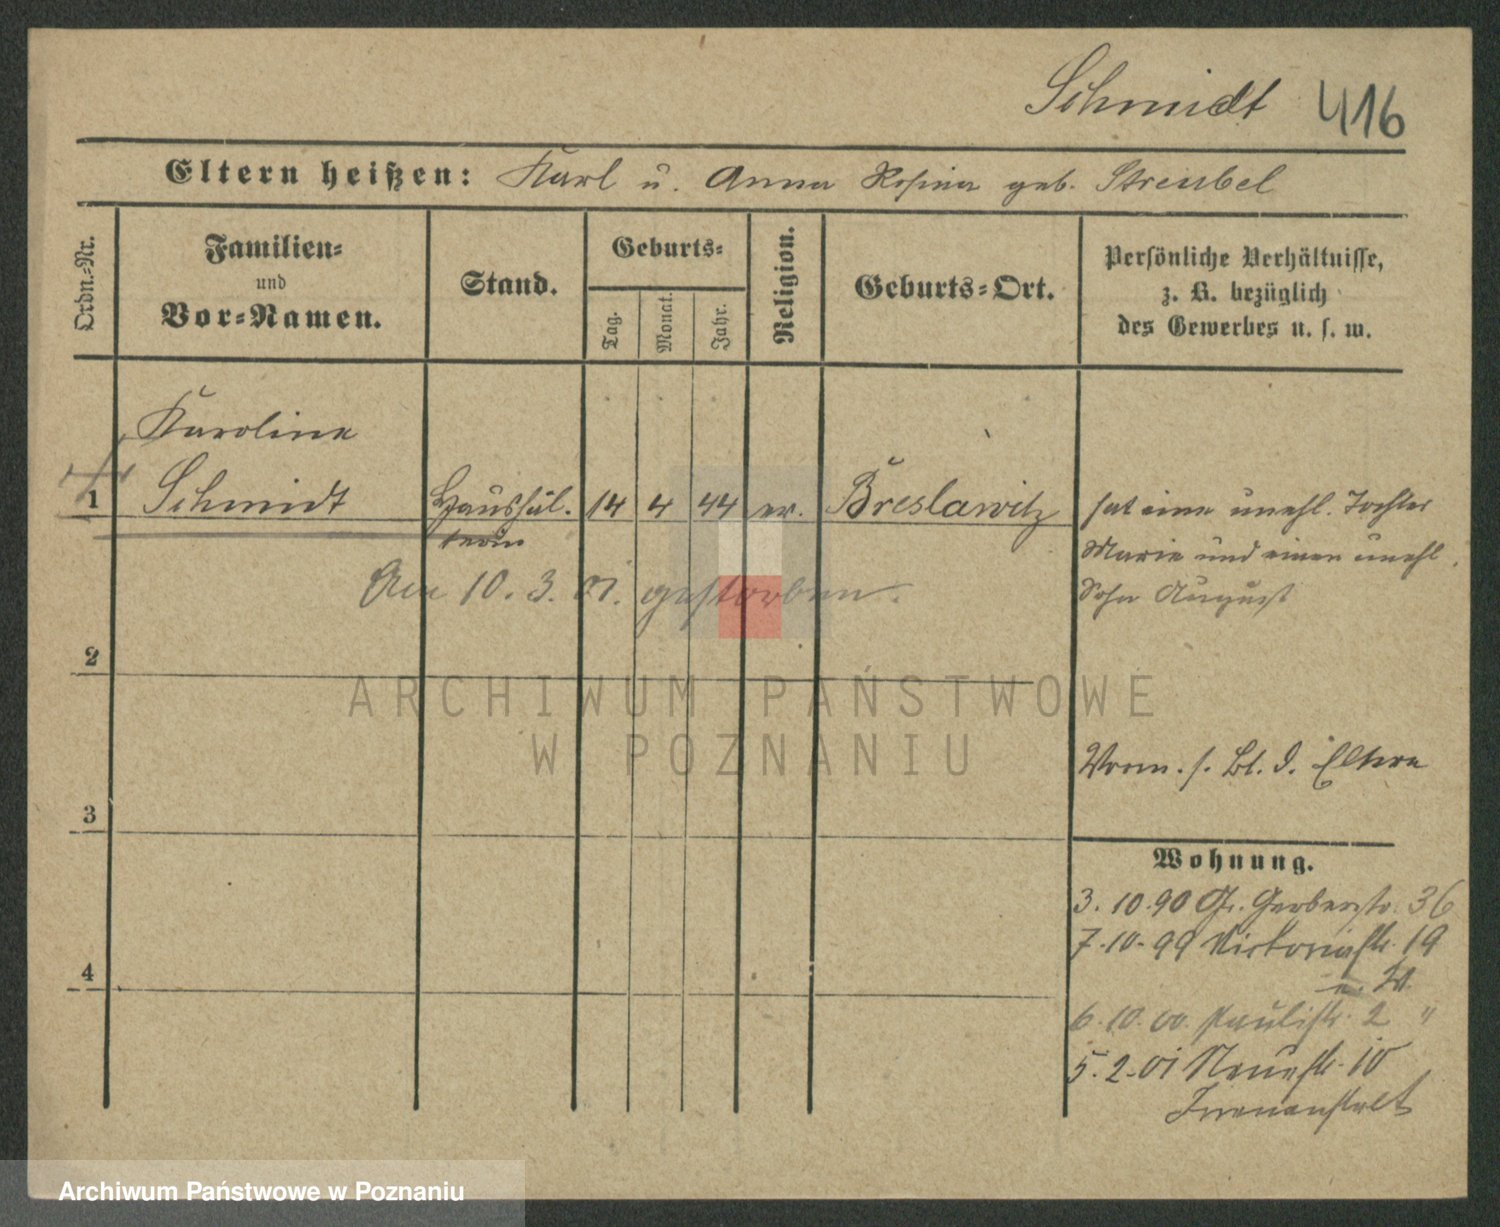 Schmidt 416
Eltern heißen: Karl u. Anna Rosina geb. Streubel
Ordn.=Nr.
Familien=
und
Vor=Namen.
Stand.
Geburts=
Tag.
Monat.
Jahr.
Religion.
Geburts=Ort.
Persönliche Verhältnisse,
z. B. bezüglich
des Gewerbes u. s. w.
Karoline
1 Schmidt Haushäl- 14 4 44 ev. Breslawitz hat eine unehl. Tochter
terin
Marie und einen unehl.
Sohn August
Am 10. 3. 01. gestorben.
2
ARCHIWUM PAŃSTWOWE
W POZNANIU
Vorm. s. Bl. d. Eltern
3
Wohnung.
3. 10. 90 Gr. Gerberstr. 36
7. 10. 99 Viktoriastr. 19
4
6. 10. 00. Paulistr. 2 "
5. 2. 01 Neuestr. 10
Irrenanstalt
Archiwum Państwowe w Poznaniu